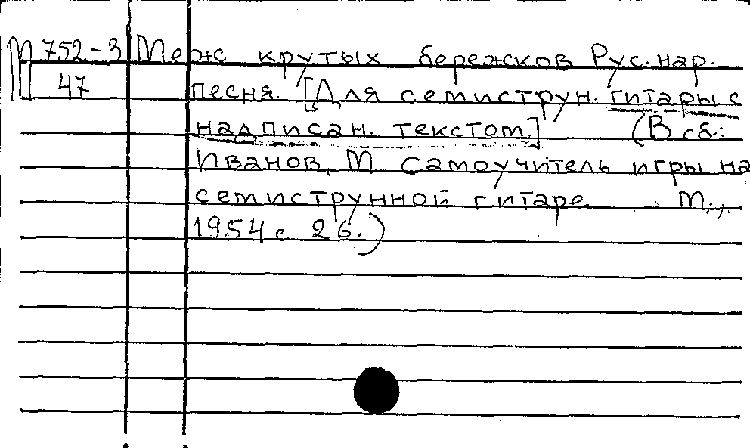 М 752-3 Меж крутых бережков Рус. нар.
47 песня. [Для семиструн. гитары с
надписан. текстом.] (В сб.:
Иванов, М. Самоучитель игры на
семиструнной гитаре. М.,
1954 с. 26.)